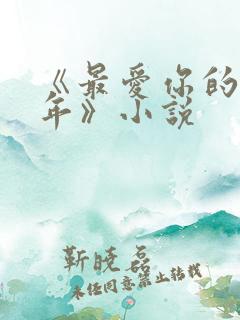 《最爱你的
年》小说
靳晓磊
未经同意禁止转载